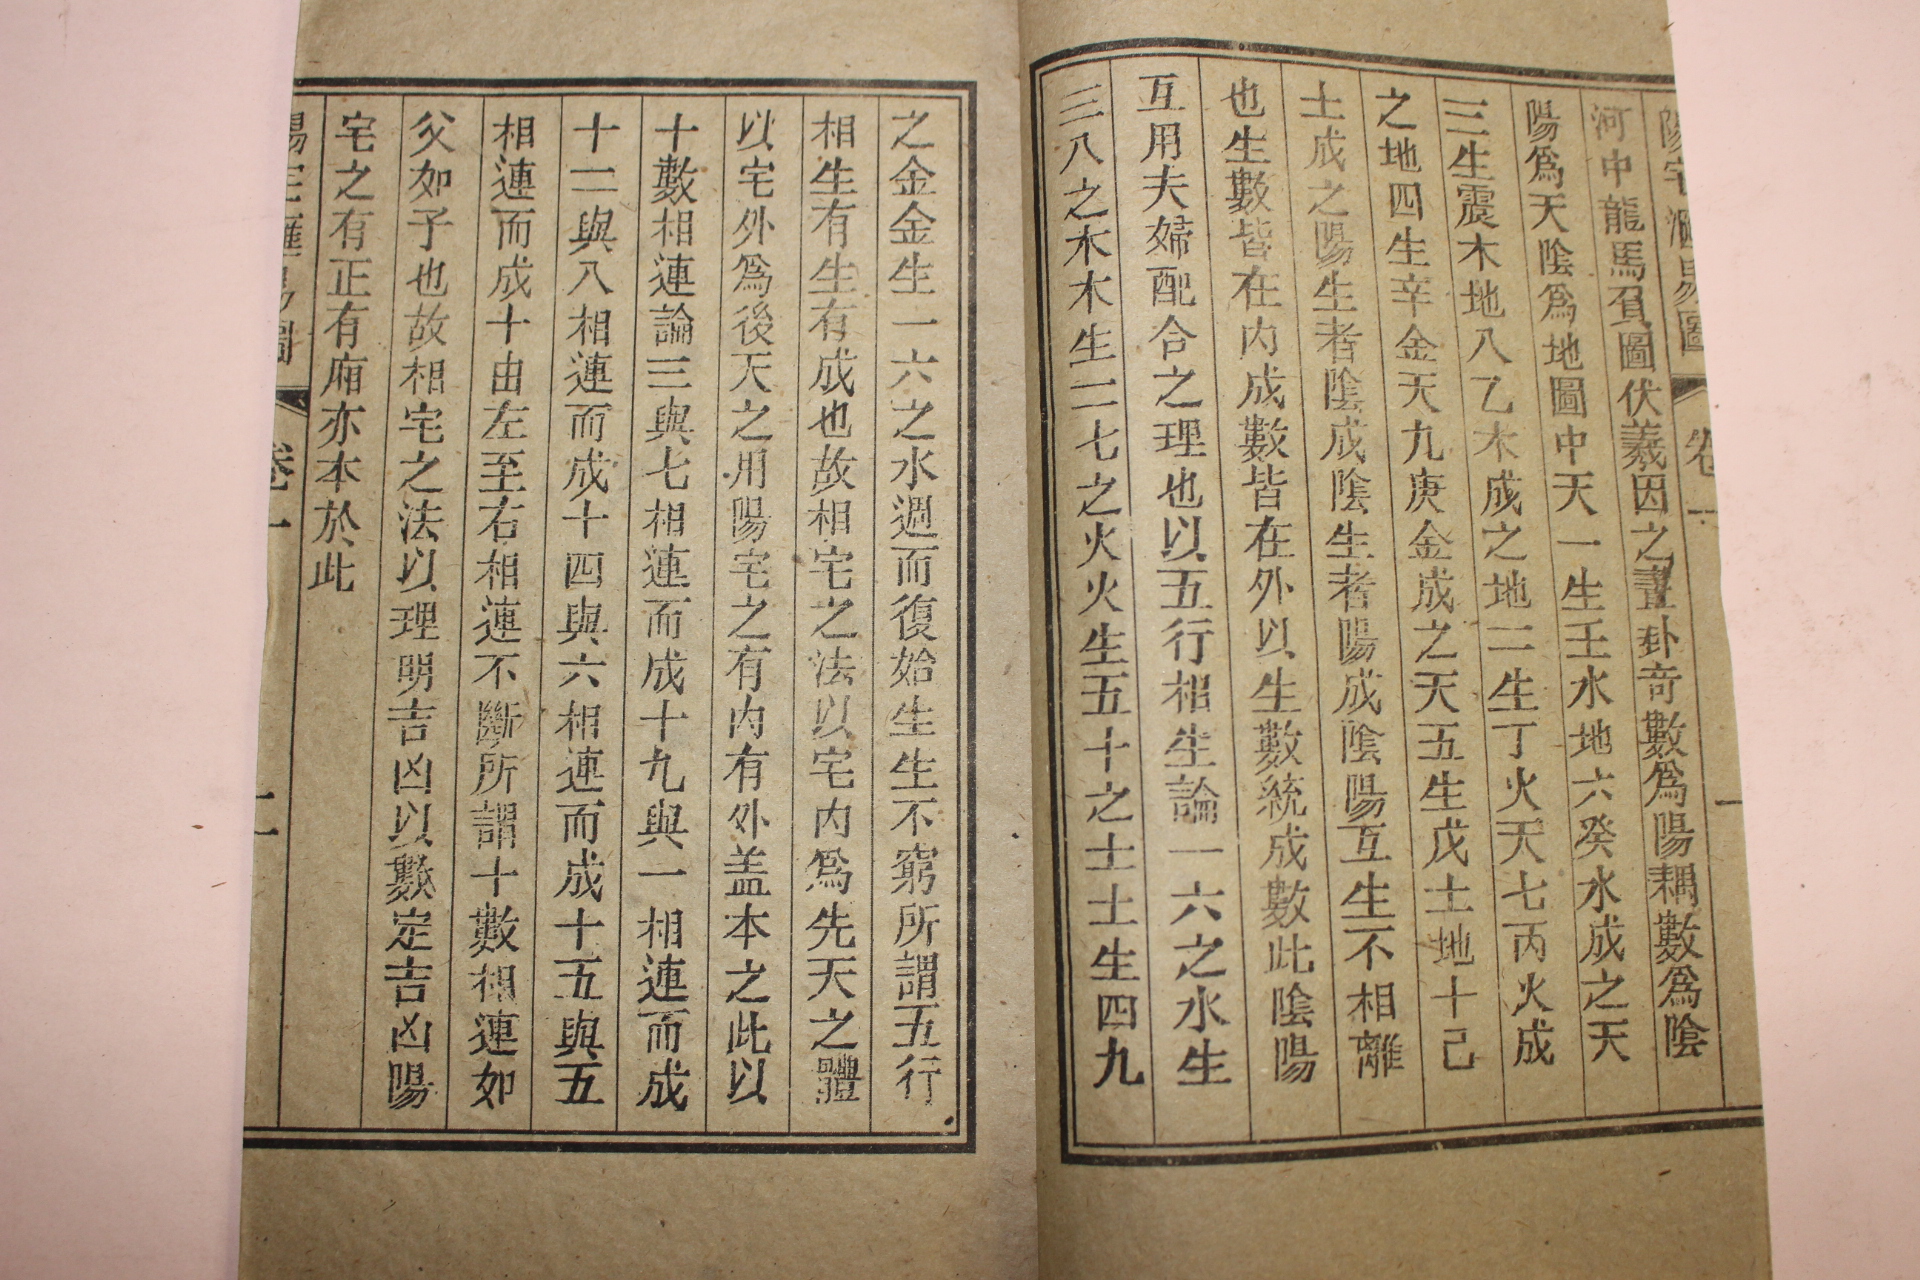 陽宅滙易圖 卷一 一
河中龍馬負圖伏羲因之畫卦奇數爲陽耦數爲陰
陽爲天陰爲地圖中天一生壬水地六癸水成之天
三生震木地八乙木成之地二生丁火天七丙火成
之地四生辛金天九庚金成之天五生戊土地十己
土成之陽生者陰成陰生者陽成陰陽互生不相離
也生數皆在内成數皆在外以生數統成數此陰陽
互用夫婦配合之理也以五行相生論一六之水生
三八之木木生二七之火火生五十之土土生四九
之金金生一六之水週而復始生生不窮所謂五行
相生有生有成也故相宅之法以宅内爲先天之體
以宅外爲後天之用陽宅之有内有外盖本之此以
十數相連論三與七相連而成十九與一相連而成
十二與八相連而成十四與六相連而成十五與五
相連而成十由左至右相連不斷所謂十數相連如
父如子也故相宅之法以理明吉凶以數定吉凶陽
宅之有正有廂亦本於此
陽宅滙易圖 卷一 二